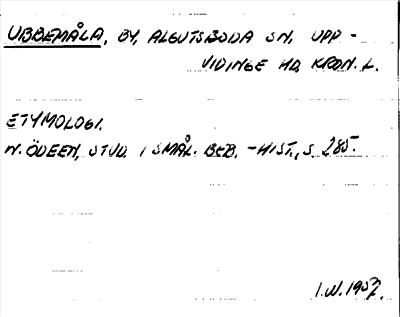 UBBEMÅLA, BY, ALGUTSBODA SN, UPP-
VIDINGE HD, KRON. L.
ETYMOLOGI.
N. ÖDEEN, STUD. I SMÅL. BEB.-HIST., S. 285.
I.W.